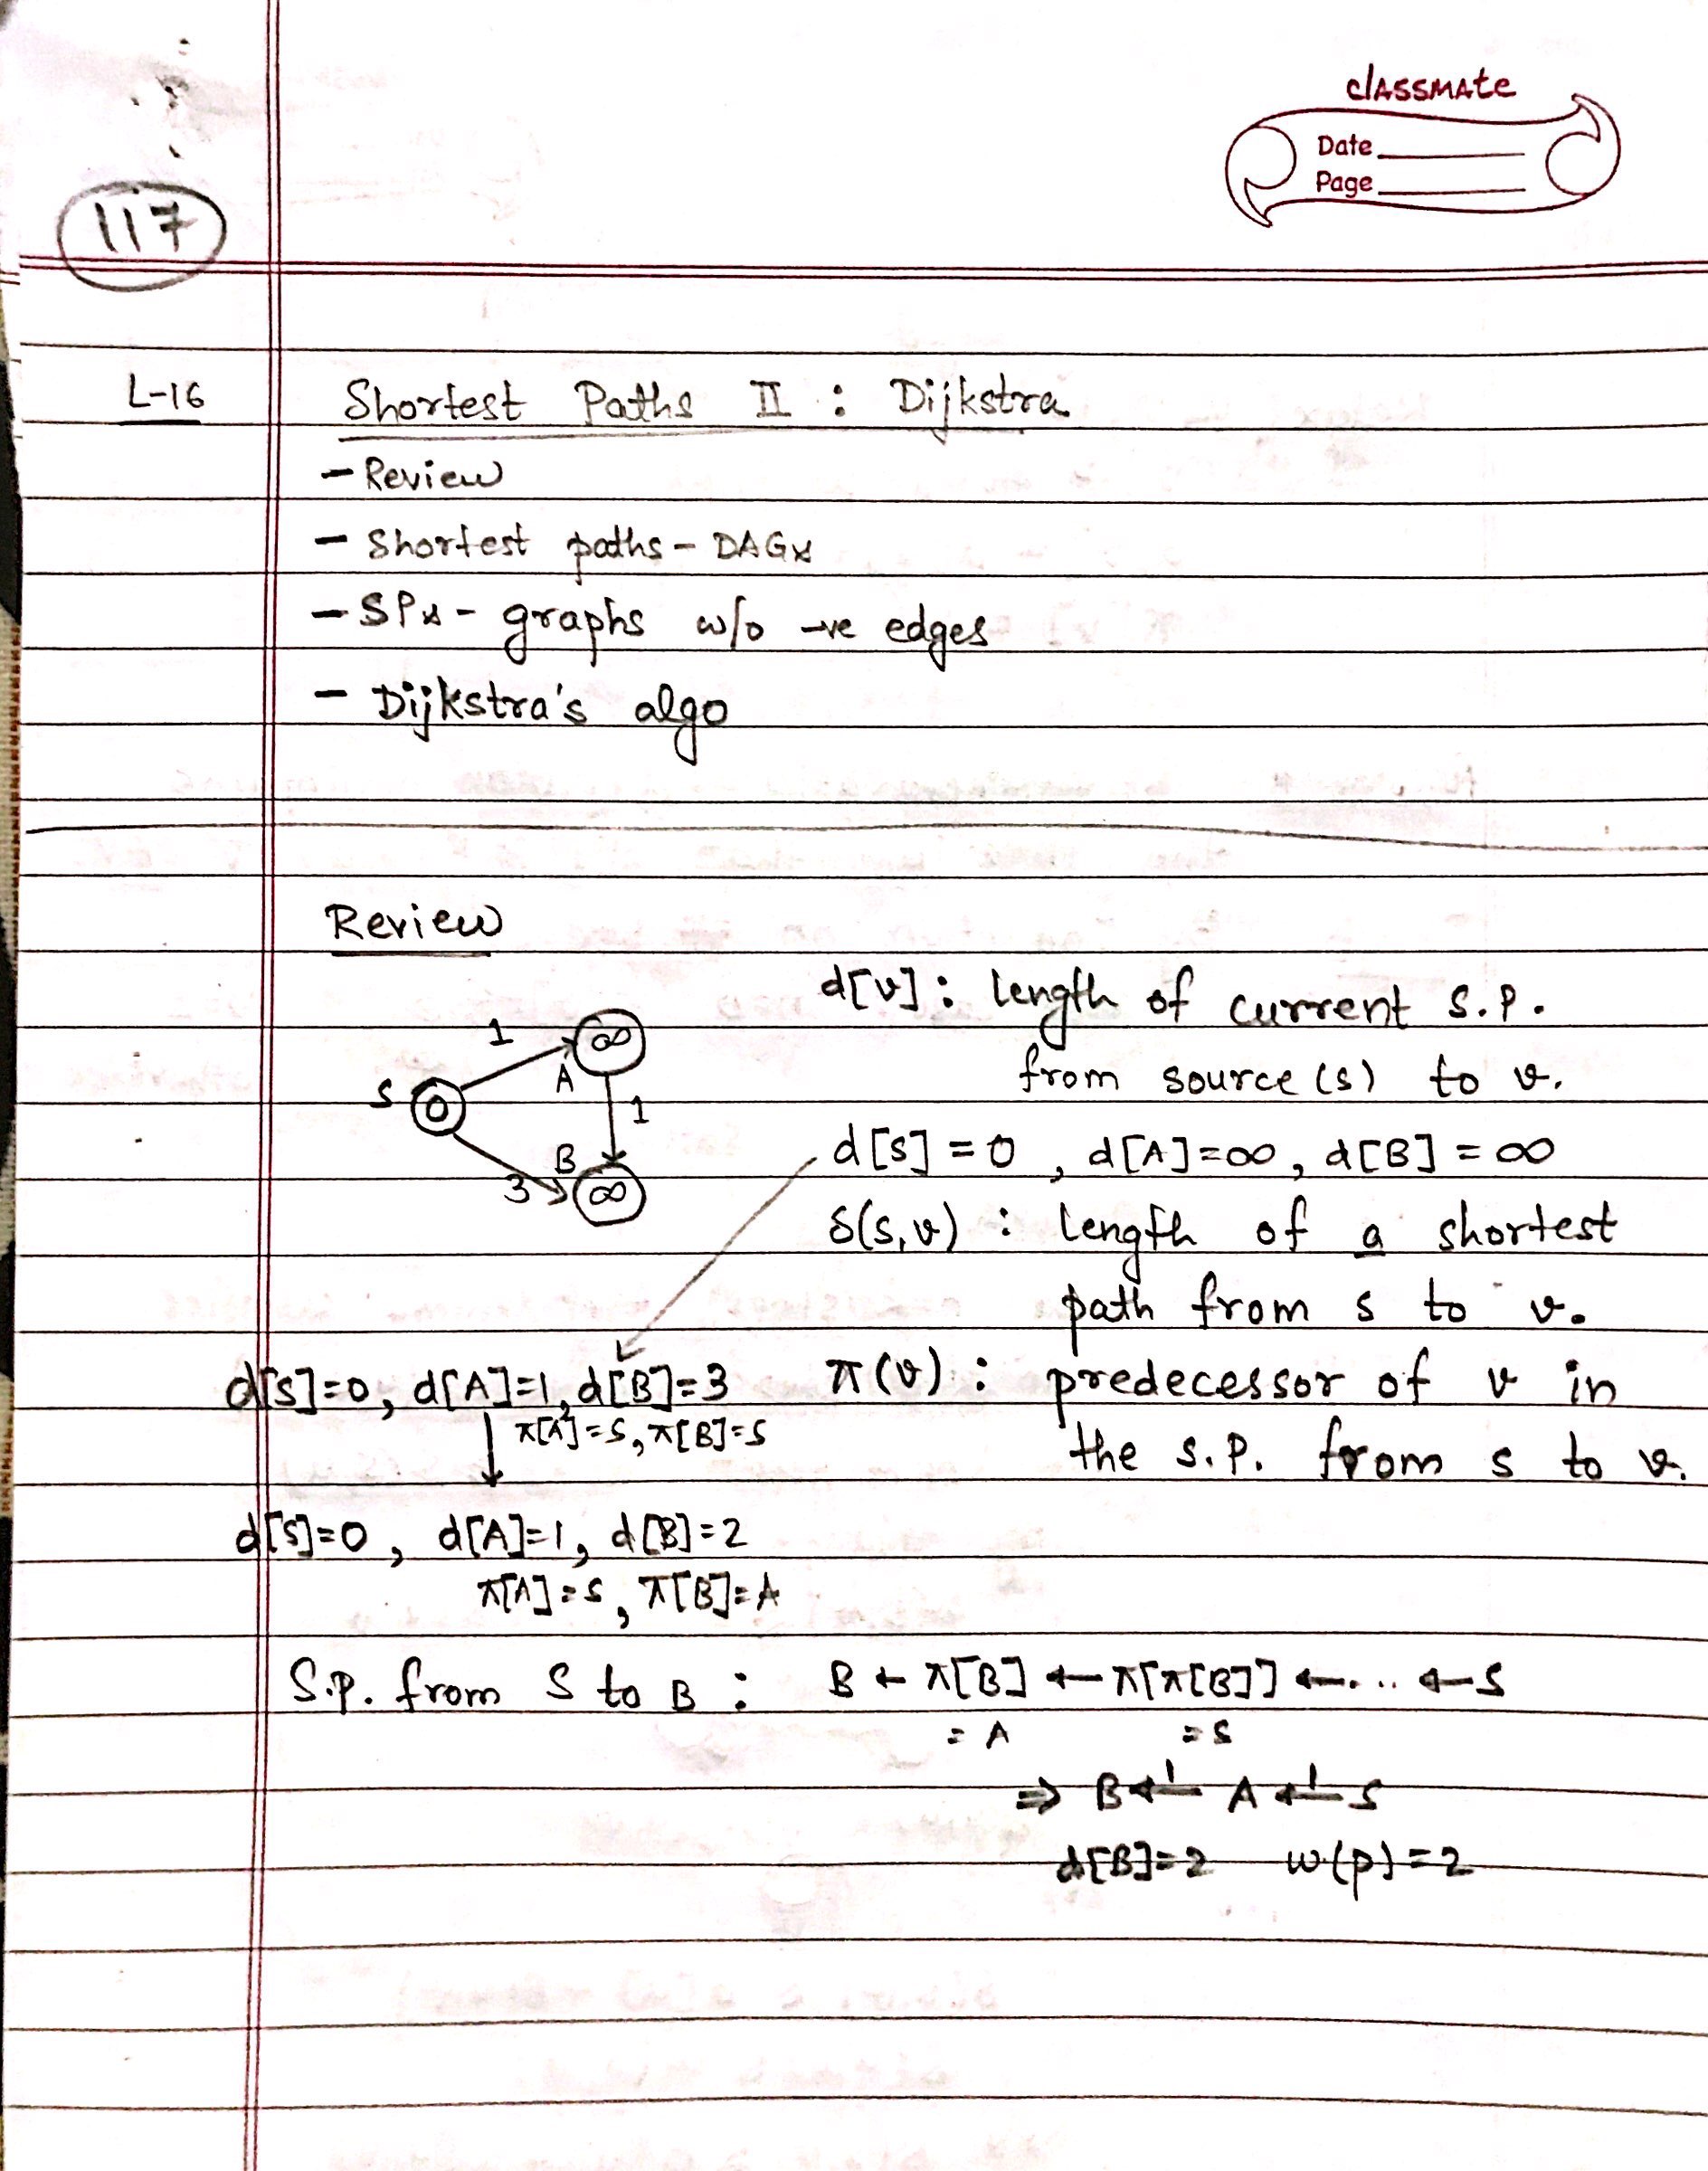 classmate
Date
Page
117
L-16
Shortest Paths II : Dijkstra
- Review
- Shortest paths - DAGs
- SPs - graphs w/o -ve edges
- Dijkstra's algo
Review
d[v] : length of current S.P.
from source (s) to v.
1
∞
A
S
0
1
B
3
∞
d[s] = 0, d[A]=∞, d[B] = ∞
δ(s,v) : length of a shortest
path from s to v.
d[s]=0, d[A]=1, d[B]=3
π[A]=S, π[B]=S
π(v) : predecessor of v in
the s.p. from s to v.
d[S]=0, d[A]=1, d[B]=2
π[A]=S, π[B]=A
S.P. from S to B : B ← π[B] ← π[π[B]] ←... ← S
= A = S
⇒ B ←1 A ←1 S
d[B]=2 w(p)=2